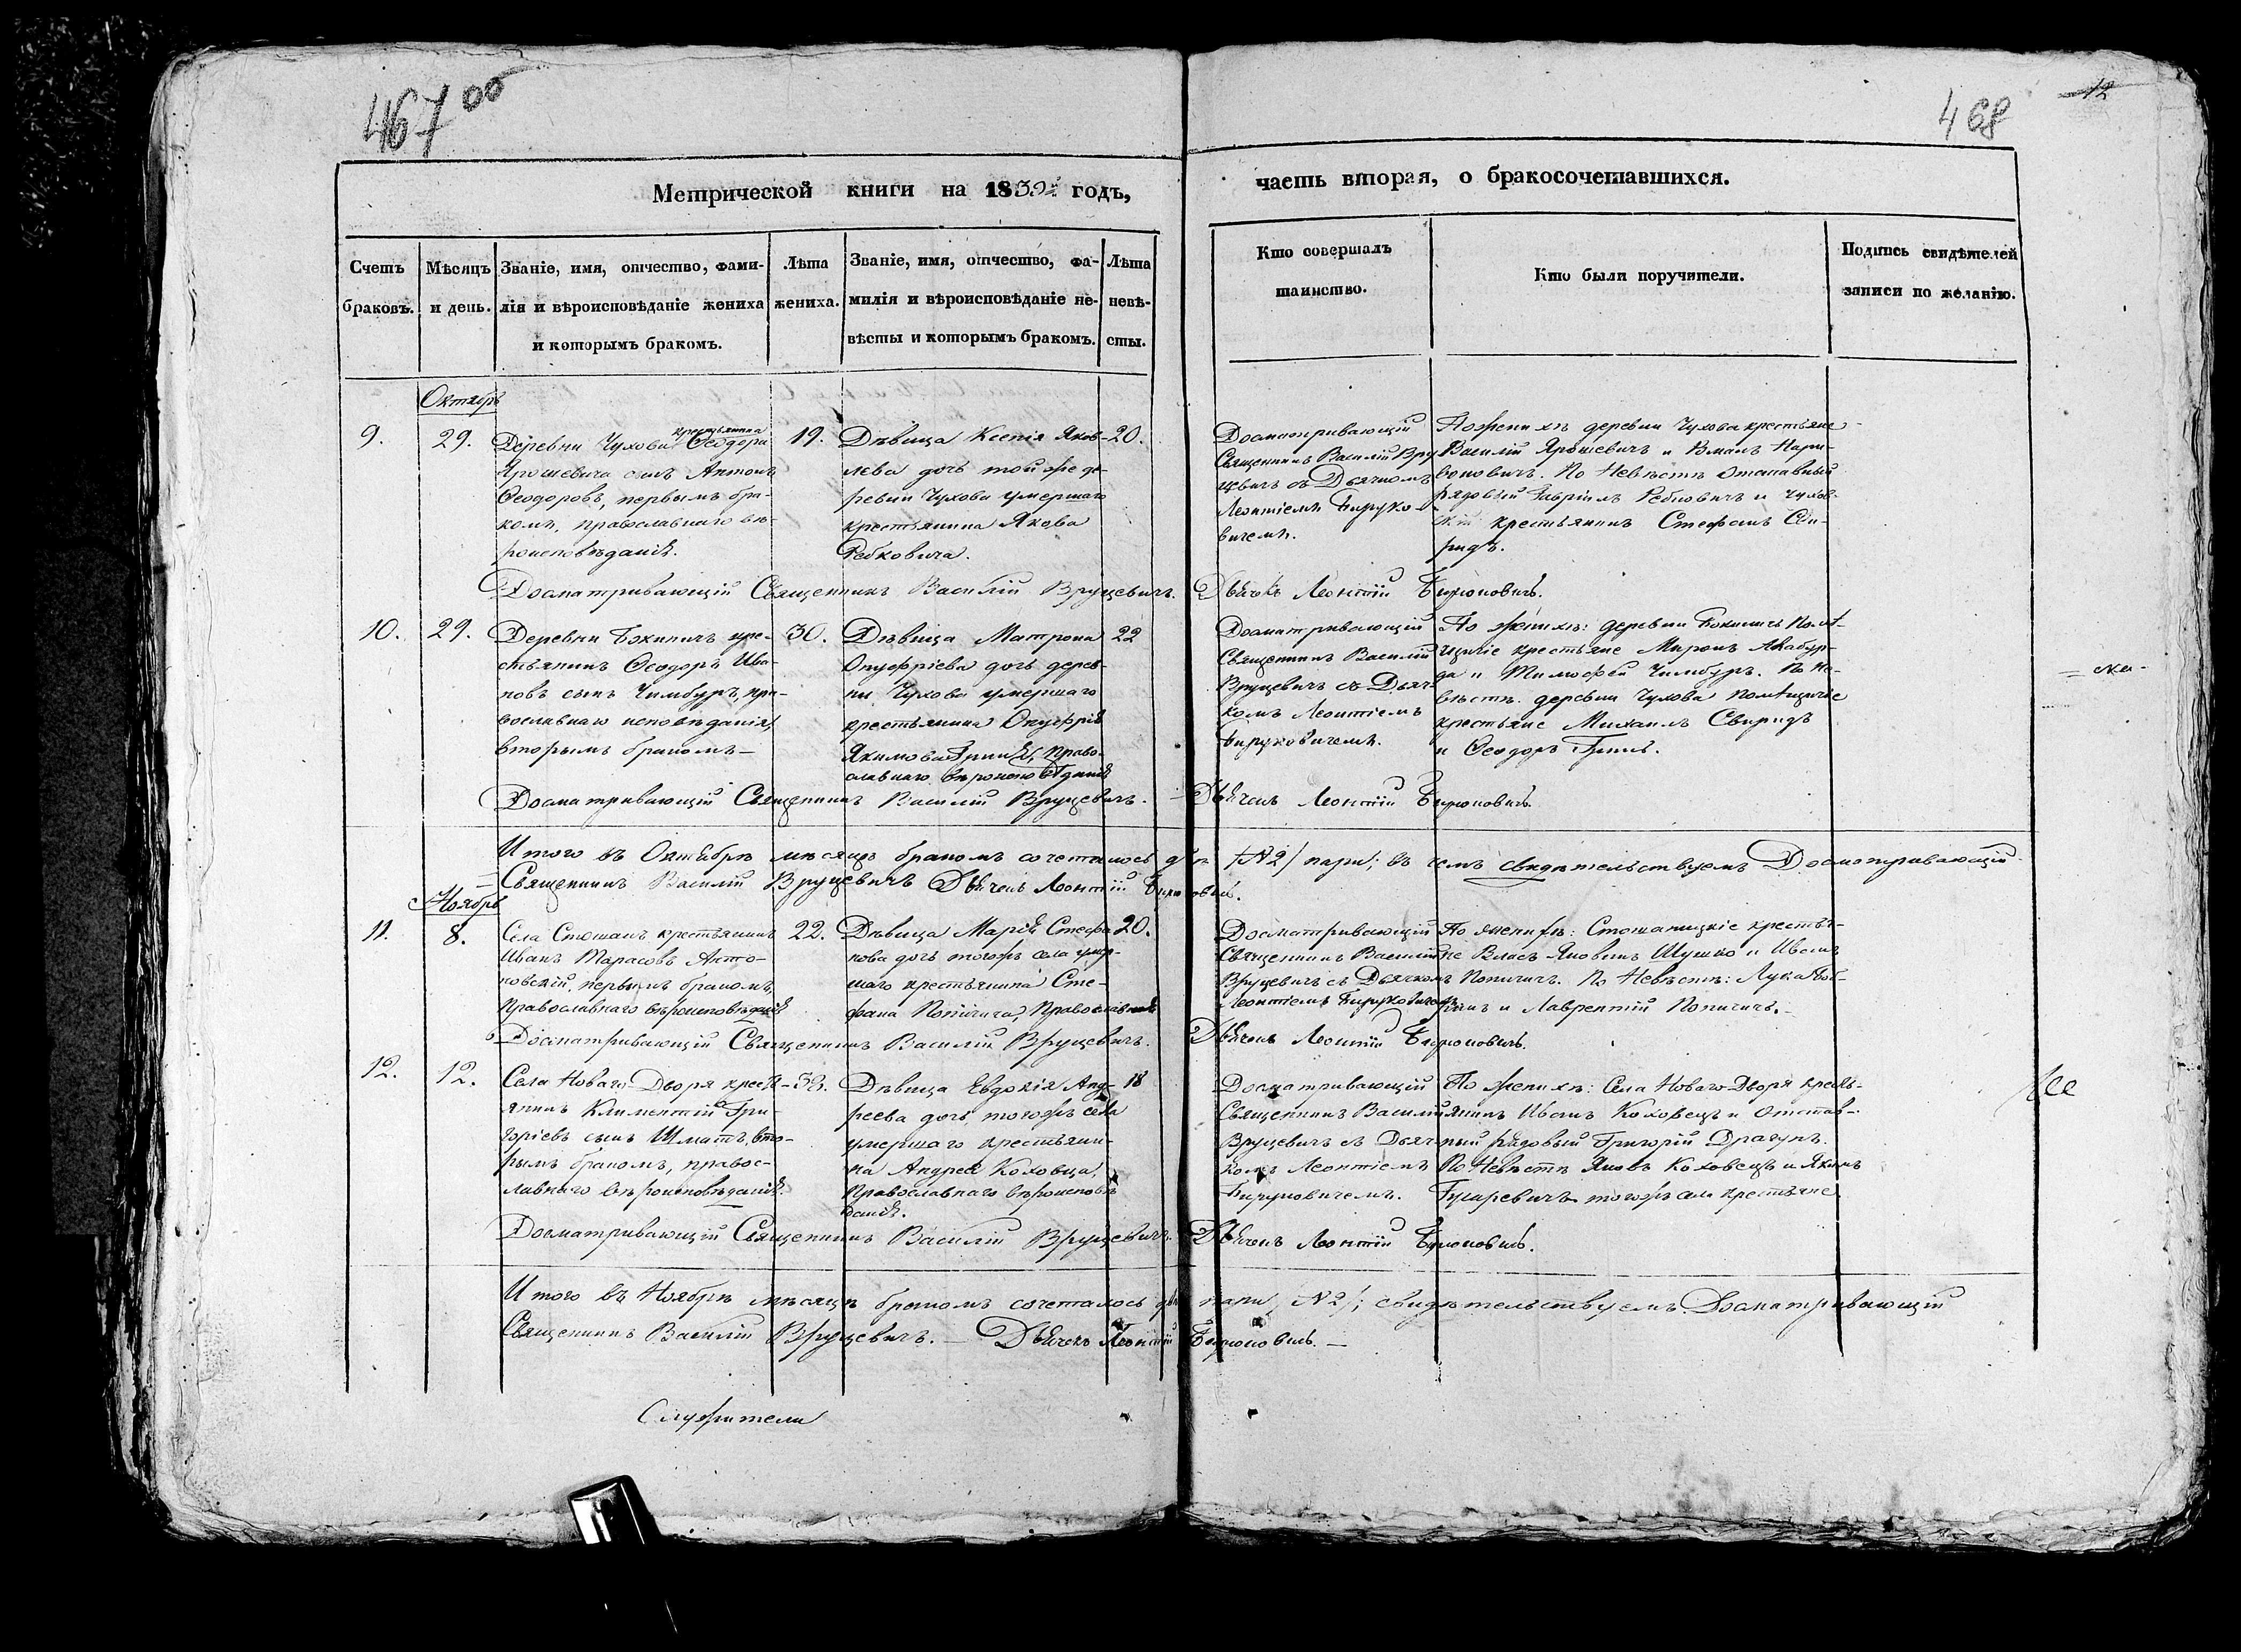 467 об
468
12
Метрической книги на 1839й годъ,
часть вторая, о бракосочетавшихся.
Счетъ браковъ.
Мѣсяцъ и день.
Званіе, имя, отчество, фами-
лія и вѣроисповѣданіе жениха
и которымъ бракомъ.
Лѣта
жениха.
Званіе, имя, отчество, фа-
милія и вѣроисповѣданіе не-
вѣсты и которымъ бракомъ.
Лѣта
невѣ-
сты.
Кто совершалъ
таинство.
Кто были поручители.
Подпись свидѣтелей
записи по желанію.
Октябрь
9.
29.
Деревни Чухова крестьянина Ѳеодора
Ярошевича сынъ Антонъ
Ѳеодоровъ, первымъ бра-
комъ, православнаго вѣ-
роисповѣданія.
19.
Дѣвица Ксенія Яков-
лева дочь той же де-
ревни Чухова умершаго
крестьянина Якова
Ребковича.
20.
Досматривающій
Священникъ Василій Вру-
цевичъ съ Дьячкомъ
Леонтіемъ Бируко-
вичемъ.
По женихѣ деревни Чухова крестьяне
Василій Ярошевичъ и
По Невѣстѣ Отставный
рядовый Гавріилъ Ребковичъ и Чухов-
скій крестьянинъ Стефанъ Сви-
ридъ.
Досматривающій Священникъ Василій Вруцевичъ. Дьячекъ Леонтій Бирюковичъ.
10.
29.
Деревни Бокиничъ кре-
стьянинъ Ѳеодоръ Ива-
новъ сынъ Чимбуръ, пра-
вославнаго исповѣданія,
вторымъ бракомъ —
30.
Дѣвица Матрона
Онуфріева дочь дерев-
ни Чухова умершаго
крестьянина Онуфрія
Якимова Право-
славнаго вѣроисповѣданія
22
Досматривающій
Священникъ Василій
Вруцевичъ съ Дьяч-
комъ Леонтіемъ
Бируковичемъ.
По женихѣ: деревни Бокиничъ Помѣ-
щичіе крестьяне Миронъ
и Тимофей Чимбуръ. По Не-
вѣстѣ. деревни Чухова помѣщичіе
крестьяне Михаилъ Свиридъ
и Ѳеодоръ
Досматривающій Священникъ Василій Вруцевичъ. — Дьячекъ Леонтій Бирюковичъ.
Итого въ Октябрѣ мѣсяцѣ бракомъ сочеталось двѣ /№2/ пары; въ чемъ свидѣтельствуемъ Досматривающій
Священникъ Василій Вруцевичъ Дьячекъ Леонтій Бирюковичъ.
Ноябрь
11.
8.
Села Стошанъ крестьянинъ
Иванъ Тарасовъ Анто-
новскій, первымъ бракомъ,
Православнаго вѣроисповѣданія
22.
Дѣвица Марія Стефа-
нова дочь тогожъ села умер-
шаго крестьянина Сте-
фана Попичича, Православная
20.
Досматривающій
Священникъ Василій
Вруцевичъ съ Дьячкомъ
Леонтіемъ Бируковичемъ
По женихѣ: Стошанскіе крестья-
не Власъ Яковинъ Шушко и Иванъ
Попичичъ. По Невѣстѣ: Лука
и Лаврентій Попичичъ.
Досматривающій Священникъ Василій Вруцевичъ. Дьячекъ Леонтій Бирюковичъ.
12.
12.
Села Новаго-Двора кресть-
янинъ Климентій Гри-
горіевъ сынъ Шматъ, вто-
рымъ бракомъ, правос-
лавнаго вѣроисповѣданія.
Дѣвица Евдокія Анд-
реева дочь, тогожъ села
умершаго крестьяни-
на Андрея Коховца,
Православнаго вѣроисповѣ-
данія.
18
Досматривающій
Священникъ Василій
Вруцевичъ съ Дьяч-
комъ Леонтіемъ
Бируковичемъ.
По женихѣ: Села Новаго-Двора кресть-
янинъ Иванъ Коховецъ и Отстав-
ный рядовый Григорій Драгунъ.
По Невѣстѣ Яковъ Коховецъ и Якимъ
Гусаревичъ тогожъ села крестьяне
Досматривающій Священникъ Василій Вруцевичъ. Дьячекъ Леонтій Бирюковичъ.
Итого въ Ноябрѣ мѣсяцѣ бракомъ сочеталось двѣ пары /№2/; свидѣтельствуемъ Досматривающій
Священникъ Василій Вруцевичъ. — Дьячекъ Леонтій Бирюковичъ. —